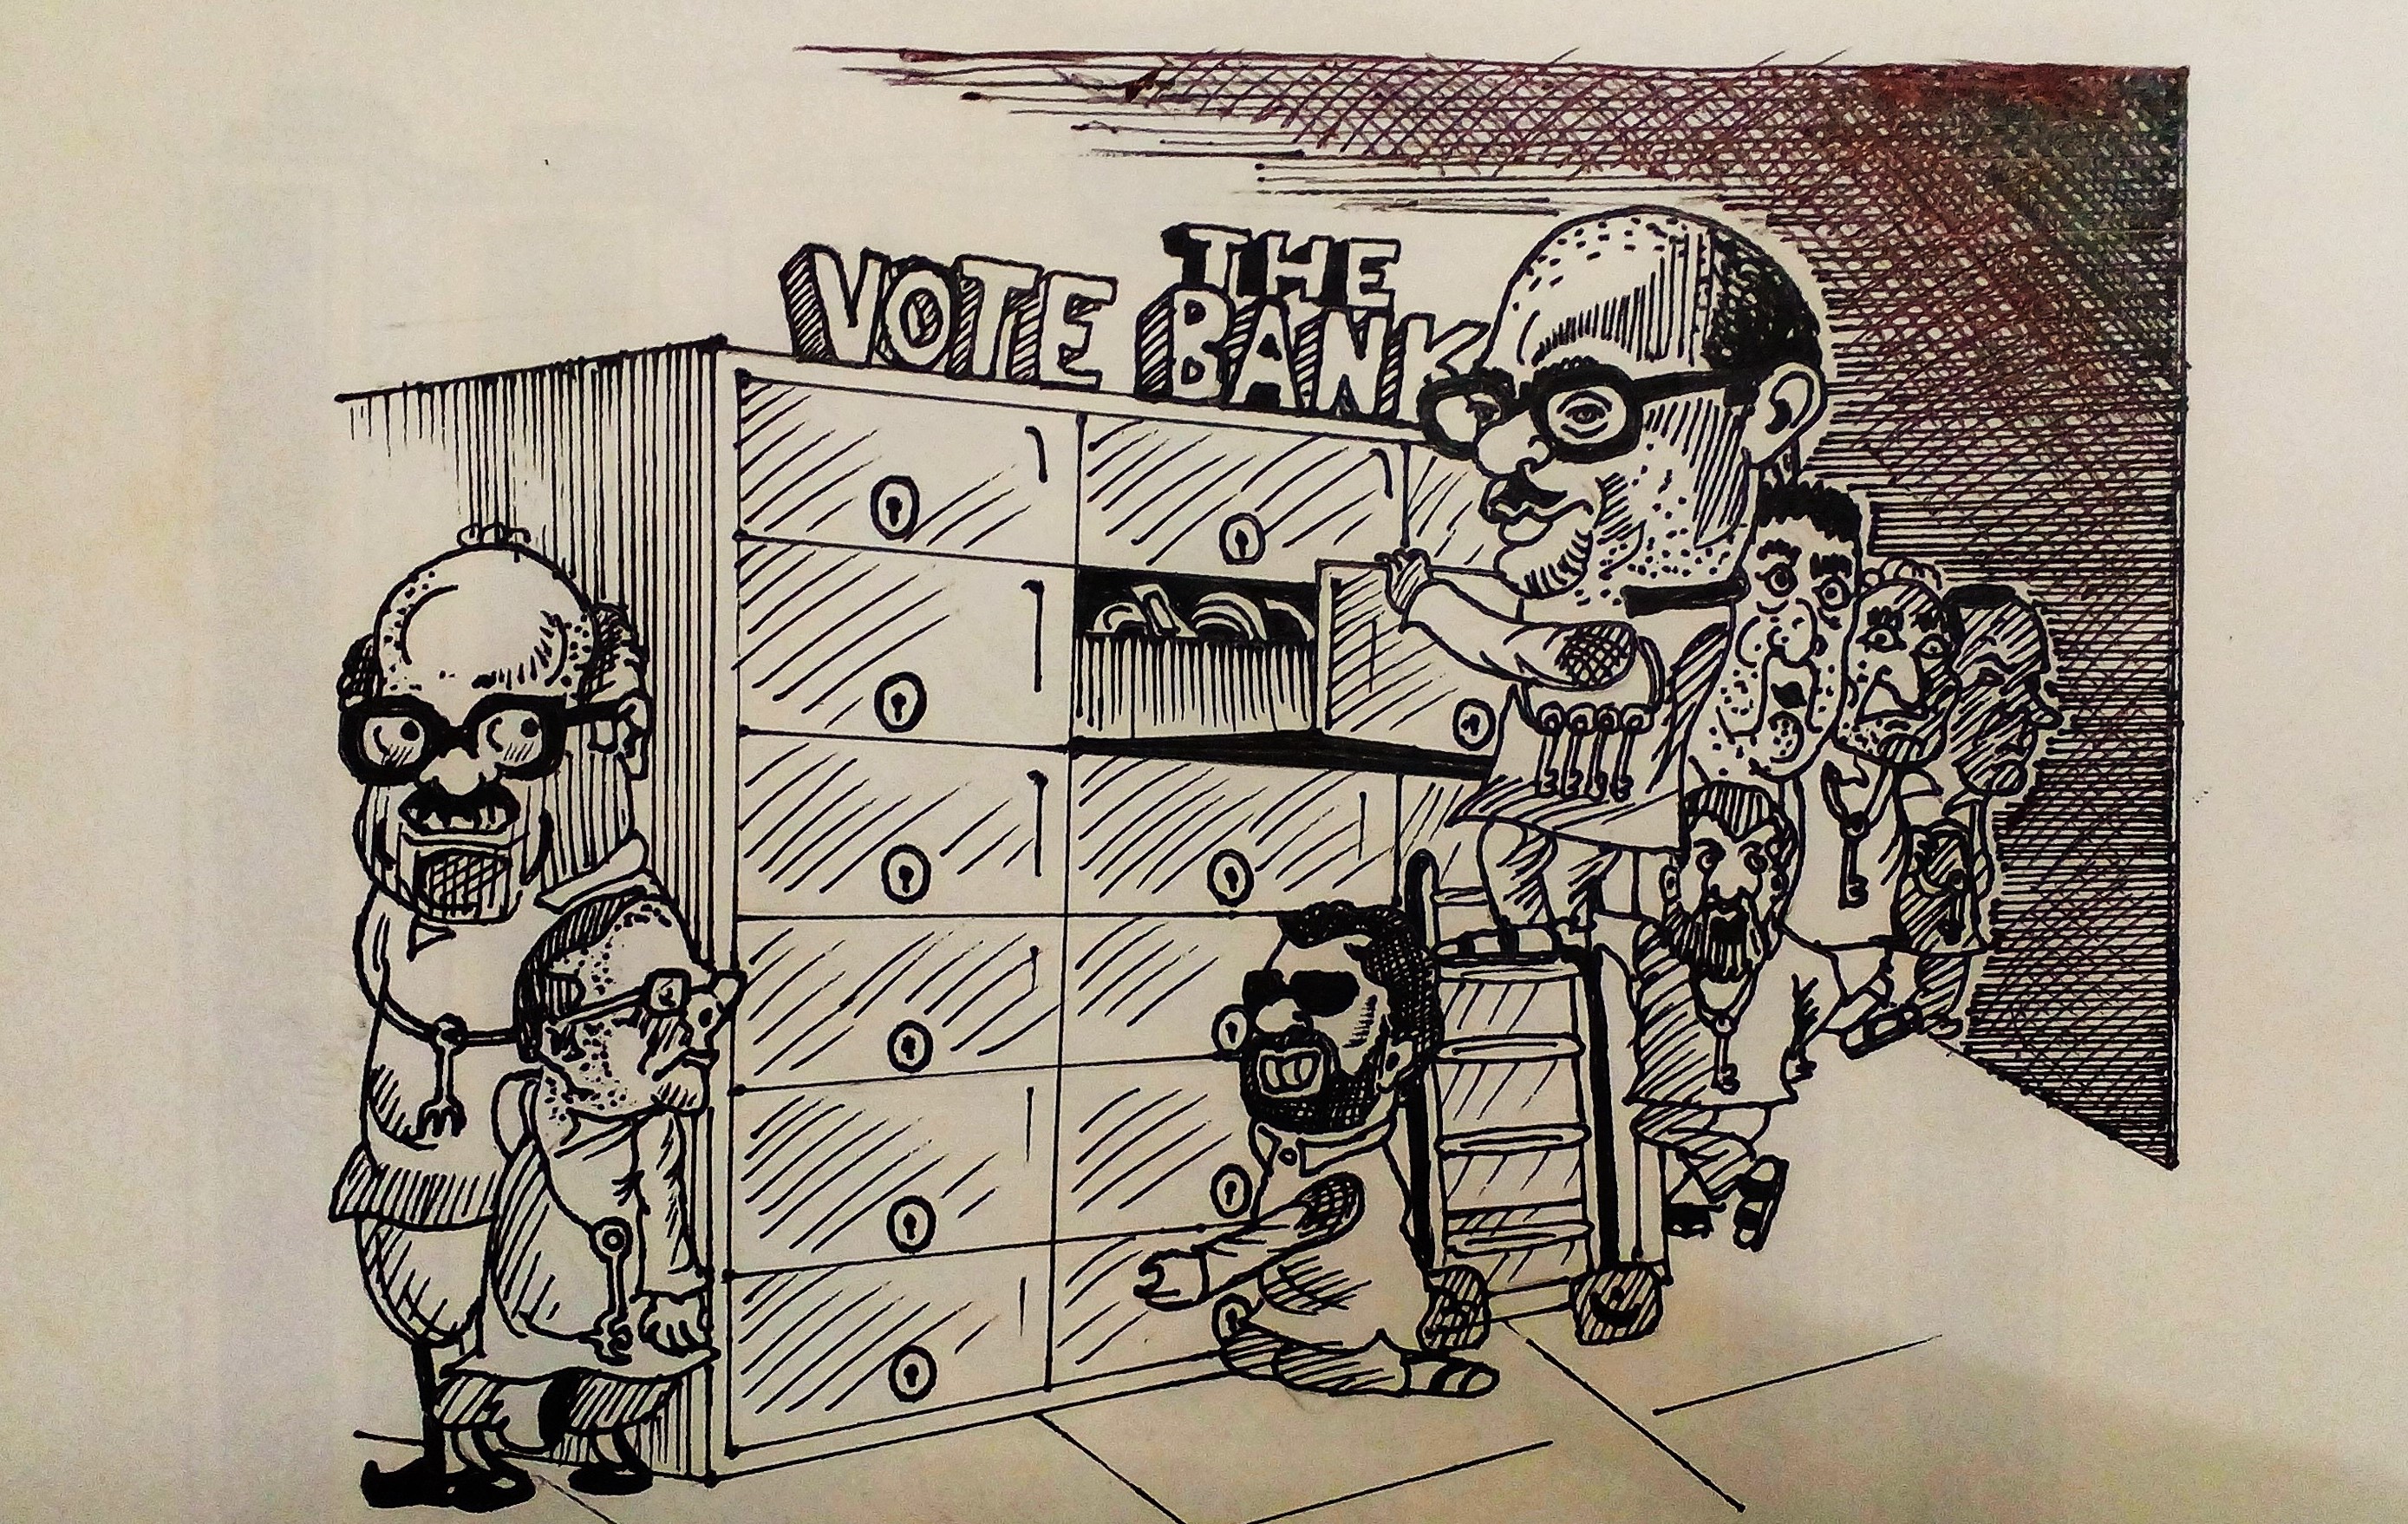 THE
VOTE BANK